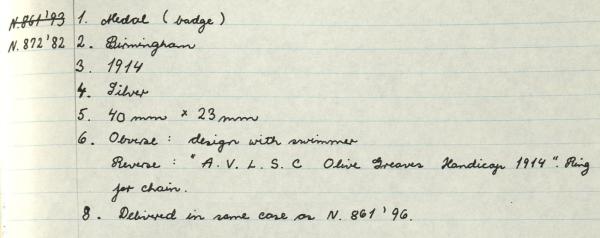 N.861'93 1. Medal (badge)
N.872'82 2. Birmingham
3. 1914
4. Silver
5. 40 mm × 23 mm
6. Obverse : design with swimmer
Reverse : "A.V.L.S.C Olive Greaves Handicap 1914". Ring
for chain.
8. Delivered in same case as N. 861'96.